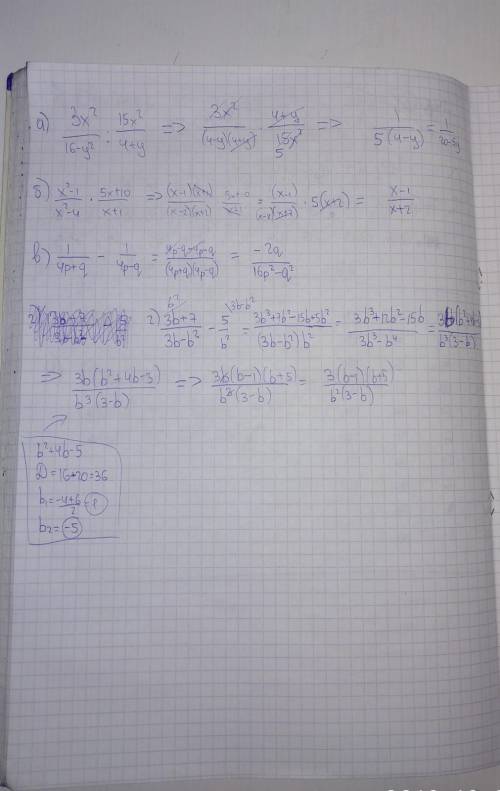 а) 3x²/(16-y²) : 15x²/(4+y) => 3x²/((4-y)(4+y)) · (4+y)/(15x²) 5 => 1/(5(4-y)) = 1/(20-5y)
б) (x²-1)/(x²-4) · (5x+10)/(x+1) => = (x-1)/ · 5(x+2) = (x-1)/(x+2)
в) 1/(4p+q) - 1/(4p-q) = (4p-q-4p-q)/((4p+q)(4p-q)) = -2q/(16p²-q²)
г) (3b+7)/(3b-b²) - 5/b² = (3b³+7b²-15b+5b²)/((3b-b²)b²) = (3b³+12b²-15b)/(3b³-b⁴) =
=> 3b(b²+4b-5)/(b³(3-b)) => 3b(b-1)(b+5)/(b³(3-b)) = 3(b-1)(b+5)/(b²(3-b))
b²+4b-5
D=16+20=36
b₁=(-4+6)/2=1
b₂=-5